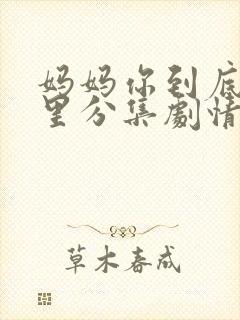 妈妈你到底
里分集劇情
草木春成